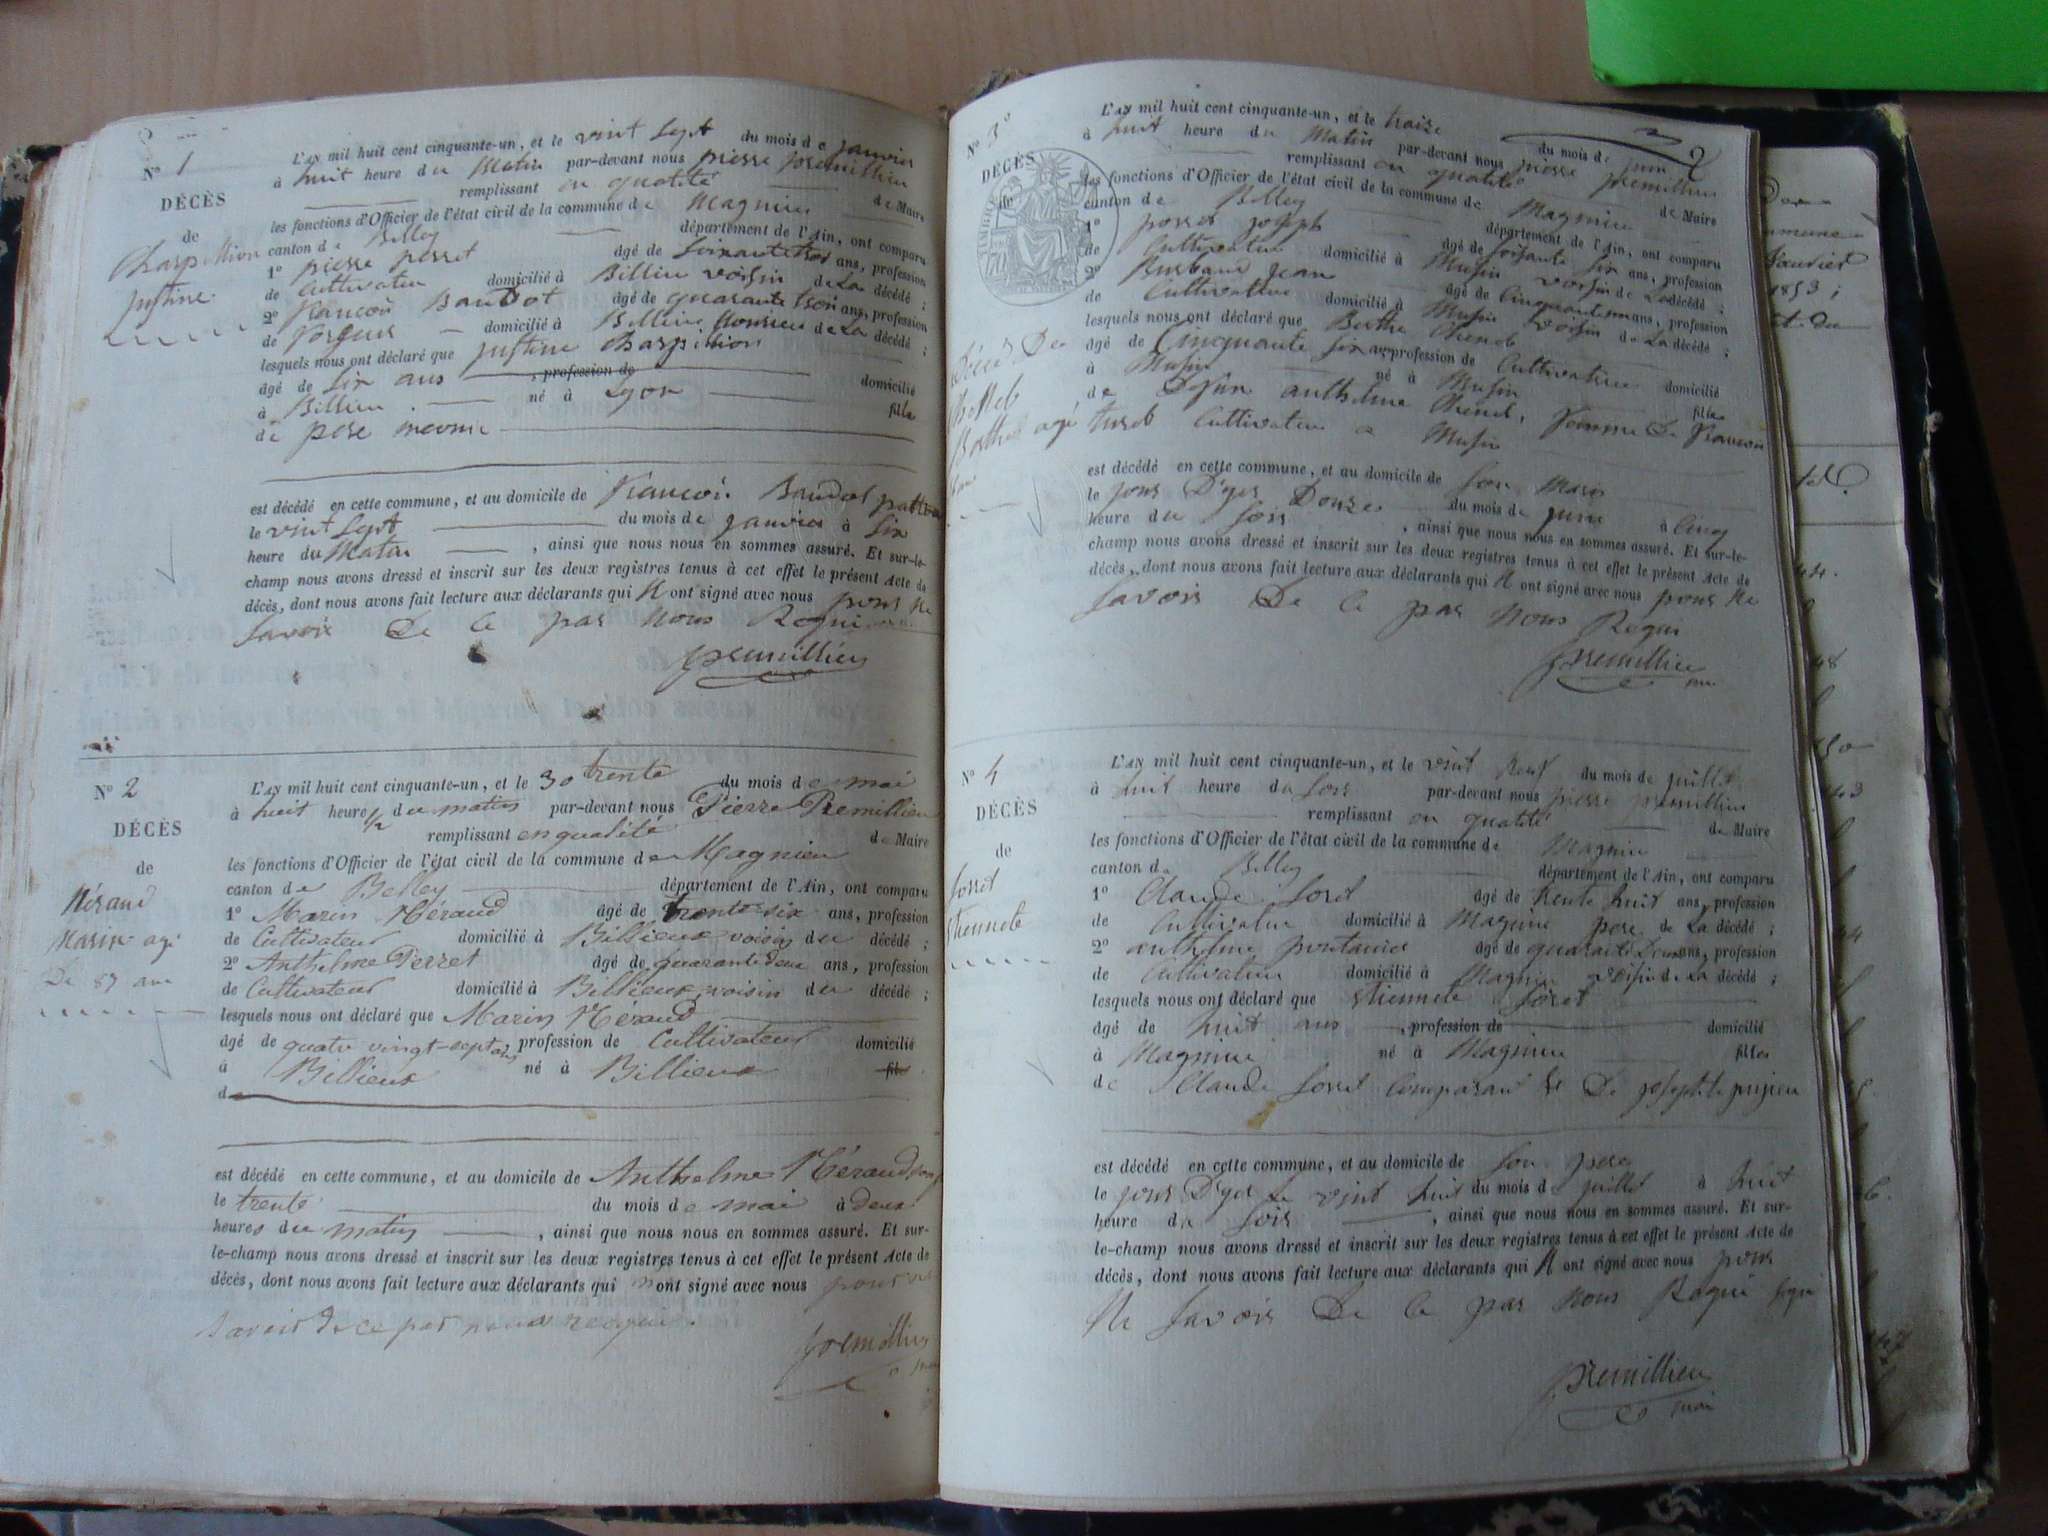 N° 1
DÉCÈS
de
Charpillion
justine
L'AN mil huit cent cinquante-un, et le vint sept du mois de janvier
à huit heure du Matin par-devant nous pierre premillieu
remplissant en qualité de Maire
les fonctions d'Officier de l'état civil de la commune de Magnieu
canton de Belley département de l'Ain, ont comparu
1° pierre perret âgé de soixante ans, profession
de Cultivateur domicilié à Billieu voisin de La décédé ;
2° françois Baudot âgé de quarante trois ans, profession
de domicilié à Billieu de La décédé ;
lesquels nous ont déclaré que justine Charpillion
âgé de six ans , profession de domicilié
à Billieu né à Lyon fille
de pere inconnu
est décédé en cette commune, et au domicile de françois Baudot
le vint sept du mois de janvier à six
heure du Matin , ainsi que nous nous en sommes assuré. Et sur-le-
champ nous avons dressé et inscrit sur les deux registres tenus à cet effet le présent Acte de
décès, dont nous avons fait lecture aux déclarants qui N ont signé avec nous pour ne
savoir De Ce par Nous Requi
premillieu
N° 2
DÉCÈS
de
Méraud
Marin agé
De 87 ans
L'AN mil huit cent cinquante-un, et le 30 trente du mois de mai
à huit heure 1/2 du matin par-devant nous Pierre Premillieu
remplissant en qualité de Maire
les fonctions d'Officier de l'état civil de la commune de Magnieu
canton de Belley département de l'Ain, ont comparu
1° Marin Méraud âgé de trente six ans, profession
de Cultivateur domicilié à Billieux voisin du décédé ;
2° Anthelme Perret âgé de quarante deux ans, profession
de Cultivateur domicilié à Billieux voisin du décédé ;
lesquels nous ont déclaré que Marin Méraud
âgé de quatre vingt-sept ans, profession de Cultivateur domicilié
à Billieux né à Billieux fil
de
est décédé en cette commune, et au domicile de Anthelme Méraud
le trente du mois de mai à deux
heures du matin , ainsi que nous nous en sommes assuré. Et sur-
le-champ nous avons dressé et inscrit sur les deux registres tenus à cet effet le présent Acte de
décès, dont nous avons fait lecture aux déclarants qui n ont signé avec nous pour ne
savoir de ce par nous requi.
premillieu
2
N° 3
DÉCÈS
de
TIMBRE
L'AN mil huit cent cinquante-un, et le traize du mois de juin
à huit heure du Matin par-devant nous pierre premillieu
remplissant en qualité de Maire
les fonctions d'Officier de l'état civil de la commune de Magnieu
canton de Belley département de l'Ain, ont comparu
1° joseph âgé de soixante six ans, profession
de Cultivateur domicilié à Musin voisin de La décédé ;
2° jean âgé de Cinquante ans, profession
de Cultivateur domicilié à Musin voisin de La décédé ;
lesquels nous ont déclaré que Berthe
âgé de Cinquante six ans profession de Cultivatrice domicilié
à Musin né à Musin fille
de anthelme femme De francois
Cultivateur a Musin
est décédé en cette commune, et au domicile de son Maris
le jour D'yer Douze du mois de juin à Cinq
heure du soir , ainsi que nous nous en sommes assuré. Et sur-le-
champ nous avons dressé et inscrit sur les deux registres tenus à cet effet le présent Acte de
décès, dont nous avons fait lecture aux déclarants qui N ont signé avec nous pour Ne
savoir De Ce par Nous Requi
premillieu
N° 4
DÉCÈS
de
L'AN mil huit cent cinquante-un, et le vint neuf du mois de juillet
à huit heure du soir par-devant nous pierre premillieu
remplissant en qualité de Maire
les fonctions d'Officier de l'état civil de la commune de Magnieu
canton de Belley département de l'Ain, ont comparu
1° Claude âgé de trente huit ans, profession
de Cultivateur domicilié à Magnieu pere de La décédé ;
2° anthelme âgé de quarante ans, profession
de Cultivateur domicilié à Magnieu voisin de La décédé ;
lesquels nous ont déclaré que
âgé de huit ans , profession de domicilié
à Magnieu né à Magnieu fille
de Claude Comparant et De
est décédé en cette commune, et au domicile de son pere
le jour D'yer vint huit du mois de juillet à huit
heure du soir , ainsi que nous nous en sommes assuré. Et sur-
le-champ nous avons dressé et inscrit sur les deux registres tenus à cet effet le présent Acte de
décès, dont nous avons fait lecture aux déclarants qui N ont signé avec nous pour
Ne savoir De Ce par Nous Requi
premillieu